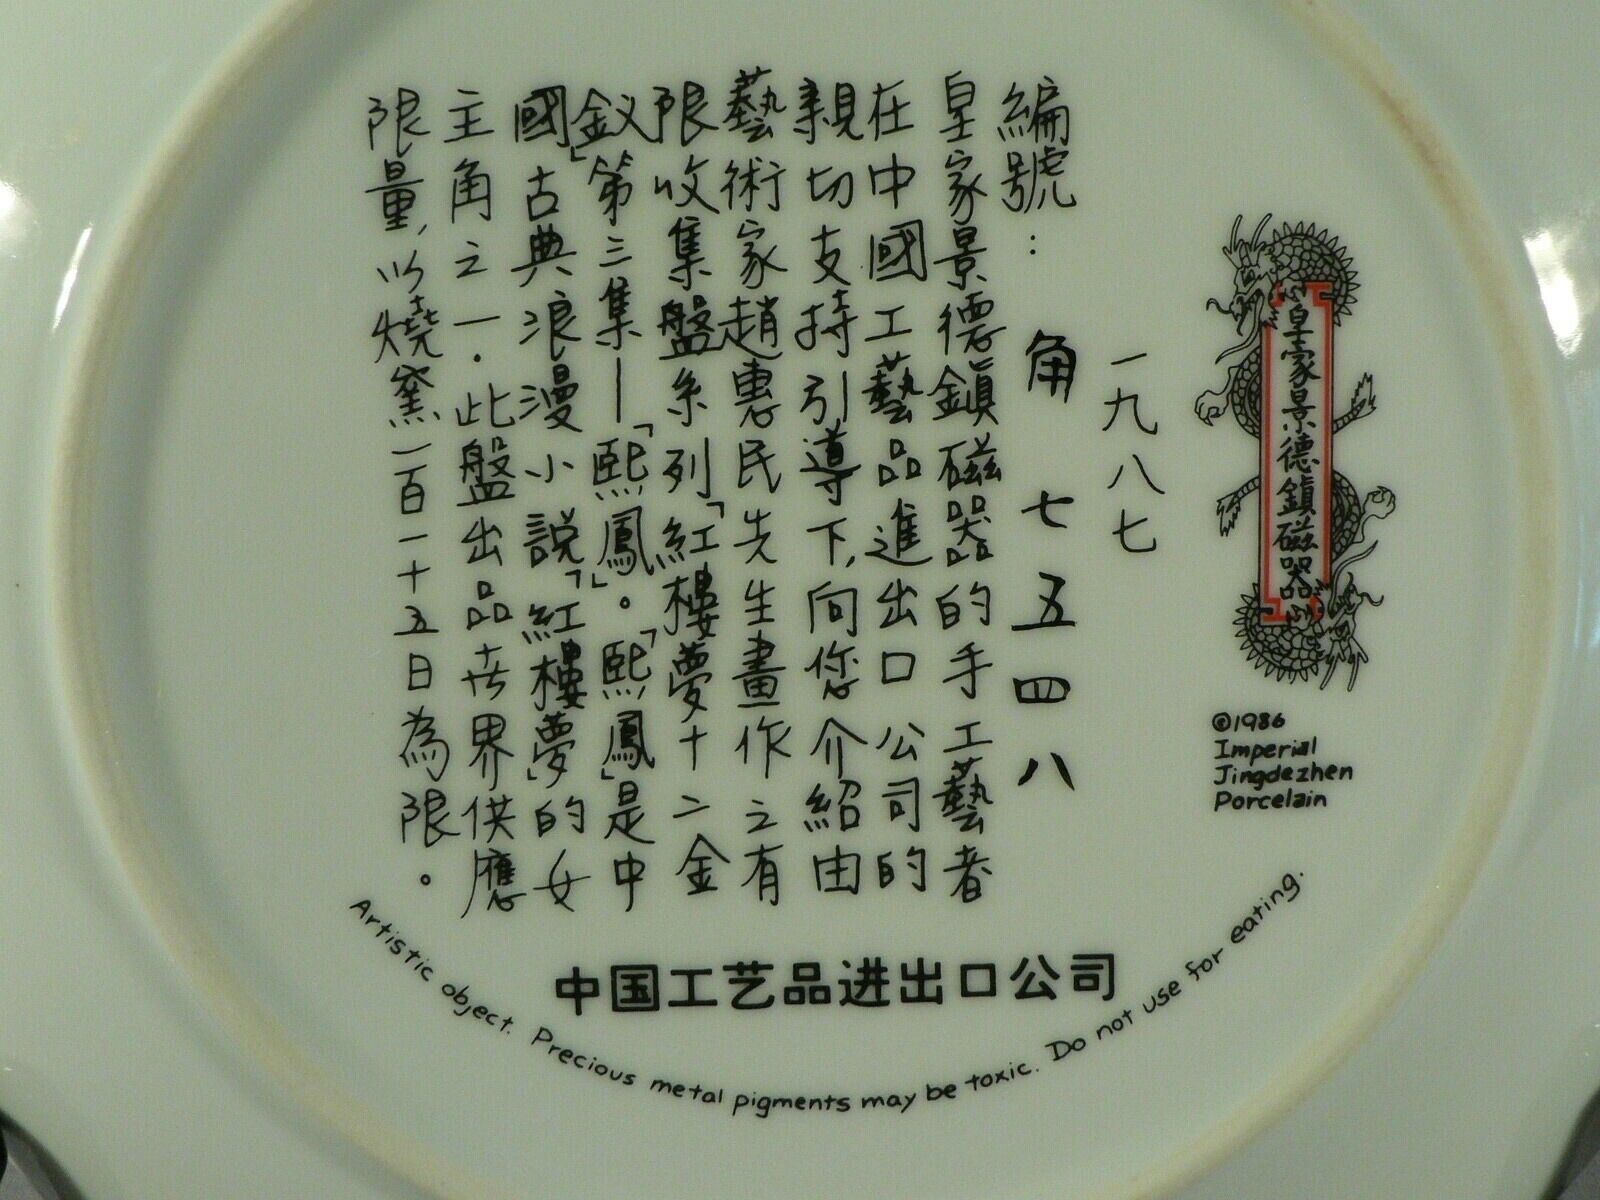 一九八七
編號： 角 七五四八
皇家景德鎮磁器的手工藝者
在中國工藝品進出口公司的
親切支持引導下，向您介紹由
藝術家趙惠民先生畫作之有
限收集盤系列「紅樓夢十二金
釵」第三集—「熙鳳」。「熙鳳」是中
國古典浪漫小説「紅樓夢」的女
主角之一．此盤出品去界供應
限量，以燒窯一百一十五日為限。
皇家景德鎮磁器
©1986
Imperial
Jingdezhen
Porcelain
中国工艺品进出口公司
Artistic object. Precious metal pigments may be toxic. Do not use for eating.